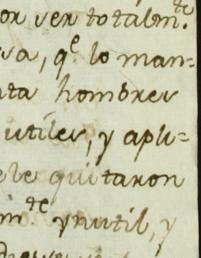 or ser totalm.te
sa, q.e lo man=
ta hombres
utiles, y apli=
se le quitaron
m.te ynutil, y